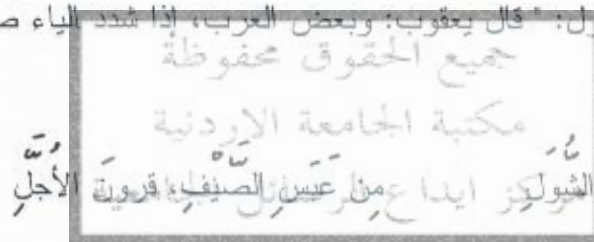 ول: " قال يعقوب: وبعض العرب، إذا شدد الياء
جميع الحقوق محفوظة
مكتبة الجامعة الاردنية
مركز ايداع الرسائل الجامعية
الشول من عبس الصيف، قرون الأجل